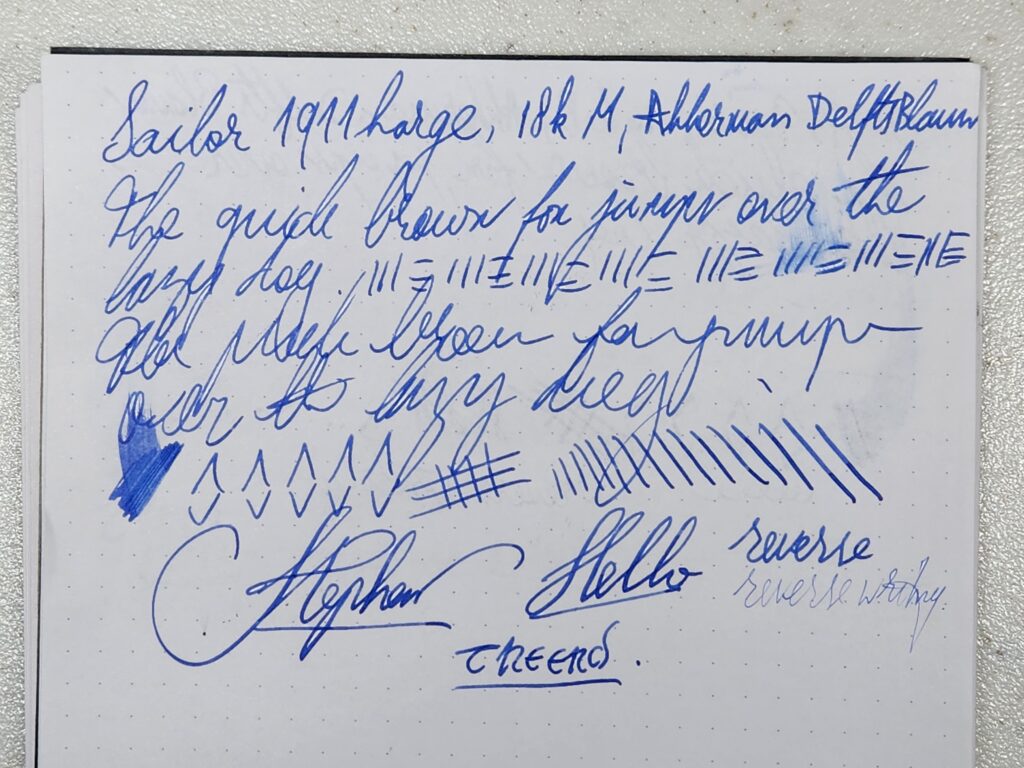 Sailor 1911 Large, 18k M, Akkerman Delfts Blauw
The quick brown fox jumps over the
lazy dog.
The quick brown fox jumps
over the lazy dog
Stephan Hello reverse
reverse writing